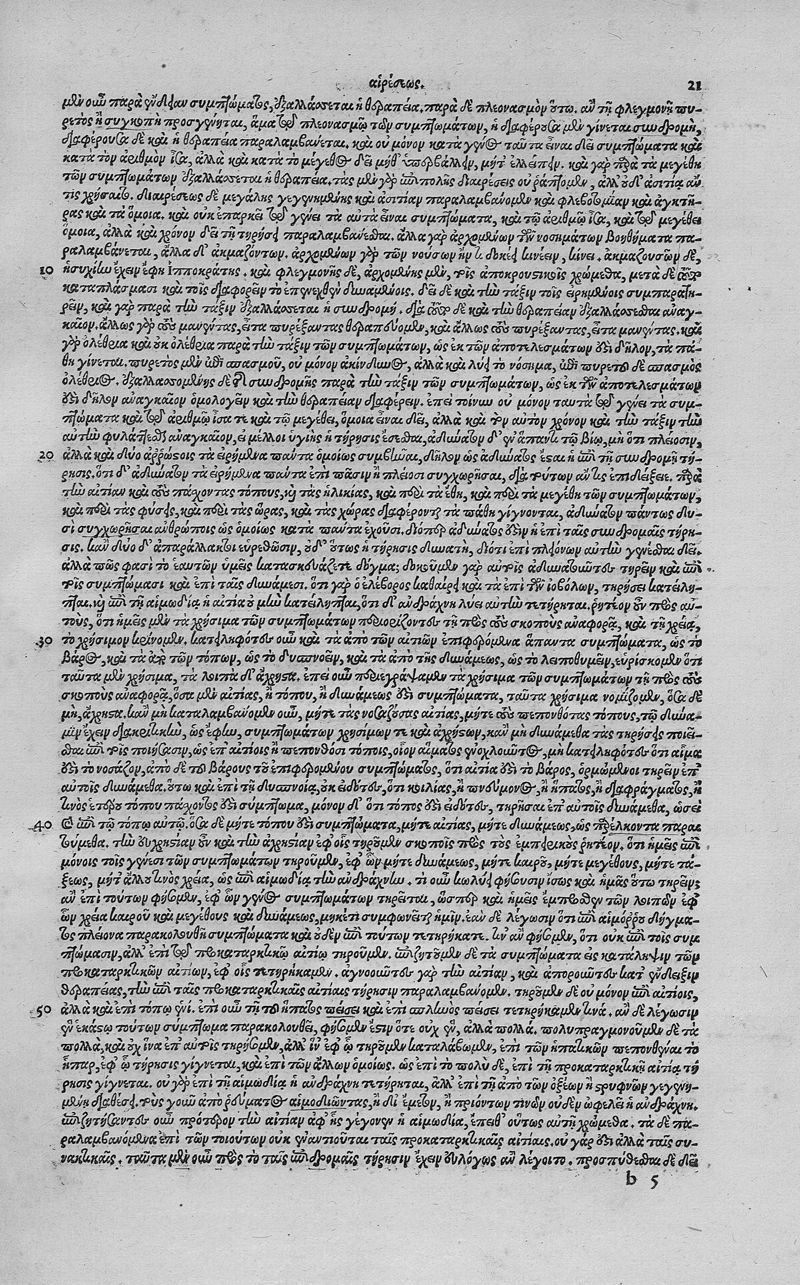 αἱρέσεως. 21
μὲν οὖν παρὰ ἔνδειαν συμπτώματος, ἐξαλλάσσεται ἡ θεραπεία. παρὰ δὲ πλεονασμὸν οὕτω. ἂν τῇ φλεγμονῇ πυ-
ρετὸς ἢ συγκοπὴ προσγένηται, ἅμα τῷ πλεονασμῷ τῶν συμπτωμάτων, ἡ διαφέρουσα μὲν γίνεται συνδρομὴ,
διαφέρουσα δὲ καὶ ἡ θεραπεία παραλαμβάνεται. καὶ οὐ μόνον κατὰ γένος ταῦτα εἶναι δεῖ συμπτώματα καὶ
κατὰ τὸν ἀριθμὸν ἴσα, ἀλλὰ καὶ κατὰ τὸ μέγεθος δεῖ μήθ' ὑπερβάλλειν, μήτ' ἐλλείπειν. καὶ γὰρ παρὰ τὰ μεγέθη
τῶν συμπτωμάτων ἐξαλλάσσεται ἡ θεραπεία. τὰς μὲν γὰρ ἐπιπολῆς διαιρέσεις οὐ ῥάπτομεν, ἀλλ' οὐδ' ἀσιτίᾳ ἄν
τις χρήσαιτο. διαιρέσεως δὲ μεγάλης γεγενημένης καὶ ἀσιτίαν παραλαμβάνομεν καὶ φλεβοτομίαν καὶ ἀγκτῆ-
ρας καὶ τὰ ὅμοια. καὶ οὐκ ἐπαρκεῖ τῷ γένει τὰ αὐτὰ εἶναι συμπτώματα, καὶ τῷ ἀριθμῷ ἴσα, καὶ τῷ μεγέθει
ὅμοια, ἀλλὰ καὶ χρόνον δεῖ τῇ τηρήσει παραλαμβάνεσθαι. ἄλλα γὰρ ἀρχομένων τῶν νοσημάτων βοηθήματα πα-
ραλαμβάνεται, ἄλλα δ' ἀκμαζόντων. ἀρχομένων γὰρ τῶν νούσων ἤν τι δοκέῃ κινέειν, κίνει. ἀκμαζουσῶν δὲ,
10 ἡσυχίαν ἔχειν ἔφη Ἱπποκράτης. καὶ φλεγμονῆς δὲ, ἀρχομένης μὲν, τοῖς ἀποκρουστικοῖς χρώμεθα, μετὰ δὲ ταῦτα
καταπλάσμασι καὶ τοῖς διαφορεῖν τὸ ἐπενεχθὲν δυναμένοις. δεῖ δὲ καὶ τὴν τάξιν τοῖς εἰρημένοις συμπαρατη-
ρεῖν, καὶ γὰρ παρὰ τὴν τάξιν ἐξαλλάσσεται ἡ συνδρομή. διὰ τοῦτο δὲ καὶ τὴν θεραπείαν ἐξαλλάσσεσθαι ἀναγ-
καῖον. ἄλλως γὰρ τοὺς μανέντας, εἶτα πυρέξαντας θεραπεύομεν, καὶ ἄλλως τοὺς πυρέξαντας, εἶτα μανέντας. καὶ
γὰρ ὀλέθρια καὶ οὐκ ὀλέθρια παρὰ τὴν τάξιν τῶν συμπτωμάτων, ὡς ἐκ τῶν ἀποτελεσμάτων ἐστὶ δῆλον, τὰ πά-
θη γίνεται. πυρετὸς μὲν ἐπὶ σπασμοῦ, οὐ μόνον ἀκίνδυνος, ἀλλὰ καὶ λύει τὸ νόσημα, ἐπὶ πυρετῷ δὲ σπασμὸς
ὀλέθριος. ἐξαλλασσομένης δὲ τῆς συνδρομῆς παρὰ τὴν τάξιν τῶν συμπτωμάτων, ὡς ἐκ τῶν ἀποτελεσμάτων
ἐστὶ δῆλον ἀναγκαῖον ὁμολογεῖν καὶ τὴν θεραπείαν διαφέρειν. ἐπεὶ τοίνυν οὐ μόνον ταῦτα τῷ γένει τὰ συμ-
πτώματα καὶ τῷ ἀριθμῷ ἴσα τε καὶ τῷ μεγέθει, ὅμοια εἶναι δεῖ, ἀλλὰ καὶ τὸν αὐτὸν χρόνον καὶ τὴν τάξιν τὴν
αὐτὴν φυλάττεσθαι ἀναγκαῖον, εἰ μέλλοι ὑγιὴς ἡ τήρησις ἔσεσθαι, ἀδύνατον δ' ἐν ἅπαντι τῷ βίῳ, μὴ ὅτι πλείοσιν,
20 ἀλλὰ καὶ δύο ἀρρώστοις τὰ εἰρημένα πάντα ὁμοίως συμβῆναι, δῆλον ὡς ἀδύνατος ἔσται ἡ ἐπὶ τῇ συνδρομῇ τή-
ρησις. ὅτι δ' ἀδύνατον τὰ εἰρημένα πάντα ἐπὶ πᾶσιν ἢ πλείοσι συγχωρῆσαι, διὰ τούτων ἄν τις ἐπιδείξειε. παρὰ
τὴν αἰτίαν καὶ τοὺς πάσχοντας τόπους, καὶ τὰς ἡλικίας, καὶ παρὰ τὰ ἔθη, καὶ παρὰ τὰ μεγέθη τῶν συμπτωμάτων,
καὶ παρὰ τὰς φύσεις, καὶ παρὰ τὰς ὥρας, καὶ τὰς χώρας διαφέροντα τὰ πάθη γίγνονται, ἀδύνατον πάντως δυ-
σὶ συγχωρῆσαι ἀνθρώποις ὡς ὁμοίως κατὰ πάντα ἔχουσι. διόπερ ἀδύνατός ἐστιν ἡ ἐπὶ ταῖς συνδρομαῖς τήρη-
σις. κἂν δύο δ' ἀπαράλλακτοι εὑρεθῶσιν, οὐδ' οὕτως ἡ τήρησις δυνατὴ, διότι ἐπὶ πλειόνων αὐτὴν γενέσθαι δεῖ.
ἀλλὰ πῶς φασὶ τὸ ἑαυτῶν ὑμεῖς κατασκευάζετε δόγμα; δοκοῦμεν γὰρ αὐτοῖς ἀδυνατοῦντες τηρεῖν καὶ ἐπὶ
τοῖς συμπτώμασι καὶ ἐπὶ ταῖς δυνάμεσι. ὅτι γὰρ ὁ ἐλλέβορος καθαίρει καὶ τὰ ἐπὶ τῶν ἰοβόλων, τηρήσει κατείλη-
πται. καὶ ἐπὶ τῇ αἱμωδίᾳ ἡ αἰτία οὐ μὴν κατείληπται, ὅτι δ' ἀνδράχνη λύει αὐτὴν τετήρηται. ῥητέον οὖν πρὸς αὐ-
τοὺς, ὅτι ἡμεῖς μὲν τὰ χρήσιμα τῶν συμπτωμάτων περιορίζοντες τῇ πρὸς τοὺς σκοποὺς ἀναφορᾷ, καὶ τῇ χρείᾳ,
30 τὸ χρήσιμον κρίνομεν. κατειληφότες οὖν καὶ τὰ ἀπὸ τῶν αἰτιῶν ἐπιφερόμενα ἅπαντα συμπτώματα, ὡς τὸ
βάρος, καὶ τὰ ἀπὸ τῶν τόπων, ὡς τὸ δυσπνοεῖν, καὶ τὰ ἀπὸ τῆς δυνάμεως, ὡς τὸ λειποθυμεῖν, εὑρίσκομεν ὅτι
ταῦτα μὲν χρήσιμα, τὰ λοιπὰ δ' ἄχρηστα. ἐπεὶ οὖν περιεγράψαμεν τὰ χρήσιμα τῶν συμπτωμάτων τῇ πρὸς τοὺς
σκοποὺς ἀναφορᾷ, ὅσα μὲν αἰτίας, ἢ τόπου, ἢ δυνάμεώς ἐστι συμπτώματα, ταῦτα χρήσιμα νομίζομεν, ὅσα δὲ
μὴ, ἄχρηστα. κἂν μὴ καταλαμβάνομεν οὖν, μήτε τὰς νοσαζούσας αἰτίας, μήτε τοὺς πεπονθότας τόπους, τῷ δύνα-
μιν ἔχειν διακριτικὴν, ὡς ἔφην, συμπτωμάτων χρησίμων τε καὶ ἀχρήστων, κἂν μὴ δυνάμεθα τὰς τηρήσεις ποιεῖ-
σθαι ἐπὶ τοῖς ποιήσασιν, ὡς ἐπ' αἰτίοις ἢ πεπονθόσι τόποις, οἷον αἵματος ἐνοχλοῦντος, μὴ κατειληφότες ὅτι αἷμα
ἐστὶ τὸ νοσάζον, ἀπὸ δὲ τοῦ βάρους τοῦ ἐπιφερομένου συμπτώματος, ὅτι αἰτία ἐστὶ τὸ βάρος, ὁρμώμενοι τηρεῖν ἐπ'
αὐτοῖς δυνάμεθα. οὕτω καὶ ἐπὶ τῇ δυσπνοίᾳ, οὐκ εἰδότες, ὅτι κοιλίας, ἢ πνεύμονος, ἢ ἥπατος, ἢ διαφράγματος, ἢ
τινὸς ἑτέρου τόπου πάσχοντός ἐστι σύμπτωμα, μόνον δ' ὅτι τόπος ἐστὶ εἰδότες, τηρῆσαι ἐπ' αὐτοῖς δυνάμεθα, ὡσεὶ
40 καὶ ἐπὶ τῷ τόπῳ αὐτῷ. ὅσα δὲ μήτε τόπου ἐστὶ συμπτώματα, μήτε αἰτίας, μήτε δυνάμεως, ὡς παρέλκοντα παραι-
τούμεθα. τὴν εὐχρηστίαν οὖν καὶ τὴν ἀχρηστίαν ἐφ' οἷς τηροῦμεν σκοποῖς πρὸς τοὺς ἐμπειρικοὺς ῥητέον. ὅτι ἡμεῖς ἐπὶ
μόνοις τοῖς γένεσι τῶν συμπτωμάτων τηροῦμεν, ἐφ' ὧν μήτε δυνάμεως, μήτε καιροῦ, μήτε μεγέθους, μήτε τά-
ξεως, μήτ' ἄλλου τινὸς χρεία, ὡς ἐπὶ αἱμωδίᾳ τὴν ἀνδράχνην. τί οὖν κωλύει φήσουσιν ἴσως καὶ ἡμᾶς οὕτω τηρεῖν;
ἂν ἐπὶ τούτων φήσομεν, ἐφ' ὧν γένος συμπτωμάτων τηρεῖται, ὥσπερ καὶ ἡμεῖς ἐμπεσὸν τῶν λοιπῶν ἐφ'
ὧν χρεία καιροῦ καὶ μεγέθους καὶ δυνάμεως, μηκέτι συμφωνεῖτε ἡμῖν. ἐὰν δὲ λέγωσιν ὅτι ἐπὶ αἱμόρρου δήγμα-
τος πλείονα παρακολουθῇ συμπτώματα καὶ οὐδὲν ἐπὶ τούτων τετηρήκατε. ἂν φήσομεν, ὅτι οὐκ ἐπὶ τοῖς συμ-
πτώμασιν, ἀλλ' ἐπὶ τῷ προκαταρκτικῷ αἰτίῳ τηροῦμεν. ἐπιζητοῦμεν δὲ τὰ συμπτώματα εἰς κατάληψιν τῶν
προκαταρκτικῶν αἰτίων, ἐφ' οἷς τετηρήκαμεν. ἀγνοοῦντες γὰρ τὴν αἰτίαν, καὶ ἀποροῦντες κατ' ἔνδειξιν
θεραπείας, τὴν ἐπὶ ταῖς προκαταρκτικαῖς αἰτίαις τήρησιν παραλαμβάνομεν. τηροῦμεν δὲ οὐ μόνον ἐπὶ αἰτίοις,
50 ἀλλὰ καὶ ἐπὶ τόπῳ ἑνί. ἐπὶ οὖν τῇ τοῦ ἥπατος πείσει καὶ ἐπὶ σπληνὸς πείσει τετηρήκαμέν τινα. ἂν δὲ λέγωσιν
ἐν ἑκάστῳ τούτων σύμπτωμα παρακολουθεῖ, φήσομεν ἔστιν ὅτε οὐχ ἓν, ἀλλὰ πολλὰ. πολυπραγμονοῦμεν δὲ τὰ
πολλὰ, καὶ οὐχ ἵνα ἐπ' αὐτοῖς τηρήσωμεν, ἀλλ' ἵν' ἐφ' ᾧ τηροῦμεν καταλάβωμεν, ἐπὶ τῶν ἡπατικῶν πεπονθέναι τὸ
ἧπαρ, ἐφ' ᾧ τήρησις γίγνεται, καὶ ἐπὶ τῶν ἄλλων ὁμοίως. ὡς ἐπὶ τὸ πολὺ δὲ, ἐπὶ τῇ προκαταρκτικῇ αἰτίᾳ τή-
ρησις γίγνεται. οὐ γὰρ ἐπὶ τῇ αἱμωδίᾳ ἡ ἀνδράχνη τετήρηται, ἀλλ' ἐπὶ τῇ ἀπὸ τῶν ὀξέων ἢ στρυφνῶν γεγενη-
μένῃ διαθέσει. τοὺς γοῦν ἀπὸ ῥεύματος αἱμοδιῶντας, ἢ δι' ἔμετον, ἢ πριόντων τινῶν οὐδὲν ὠφελεῖ ἡ ἀνδράχνη.
ἐπιζητήσαντες οὖν πρότερον τὴν αἰτίαν ἀφ' ἧς γέγονεν ἡ αἱμωδία, ἔπειθ' οὕτως αὐτῇ χρώμεθα. τὰ δὲ πα-
ραλαμβανόμενα ἐπὶ τῶν τοιούτων οὐκ ἐναντιοῦνται ταῖς προκαταρκτικαῖς αἰτίαις. οὐ γὰρ ἐστὶ ἀλλὰ ταῖς συ-
νεκτικαῖς. ταῦτα μὲν οὖν πρὸς τὸ ταῖς ἐπὶ συνδρομαῖς τήρησιν ἔχειν εὐλόγως ἂν λέγοιτο. προσπυθέσθαι δὲ δεῖ
b 5